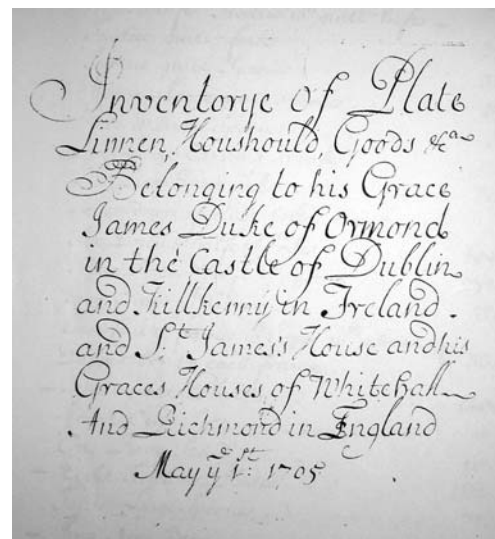 Inventorye of Plate
Linnen, Houshould, Goods &ca
Belonging to his Grace
James Duke of Ormond
in the Castle of Dublin
and Killkenny in Ireland.
and St James's House and his
Graces Houses, of Whitehall
And Richmond in England
May ye 1st: 1705